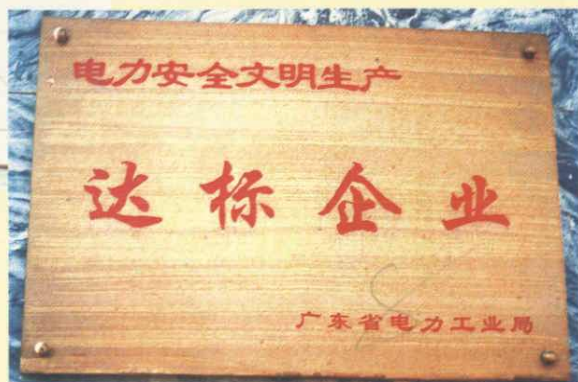 电力安全文明生产
达标企业
广东省电力工业局